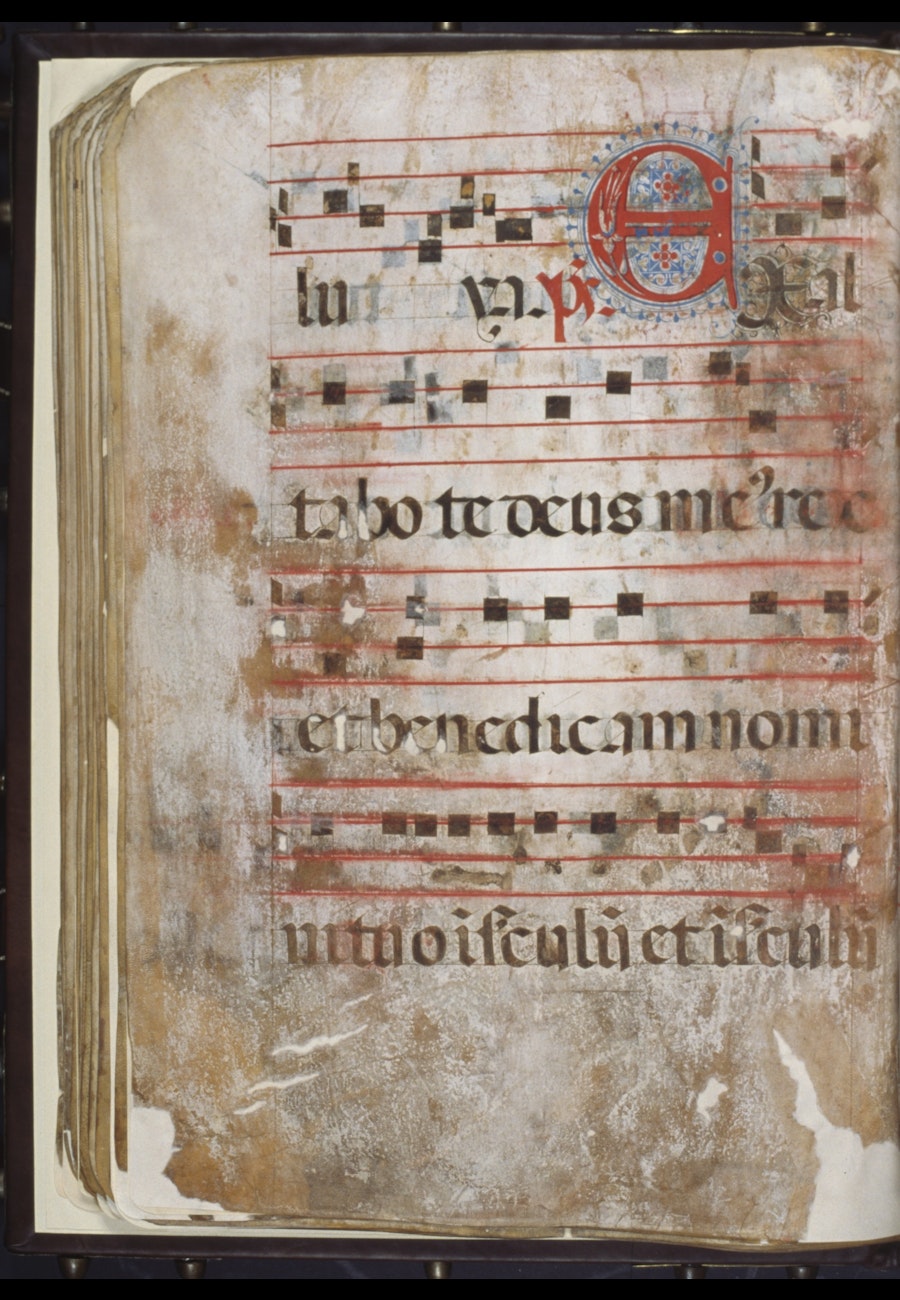 lu ya. ps. Exal
tabo te deus me⁹ rex
et benedicam nomi
ni tuo ī sc̄ulū et ī sc̄ulū